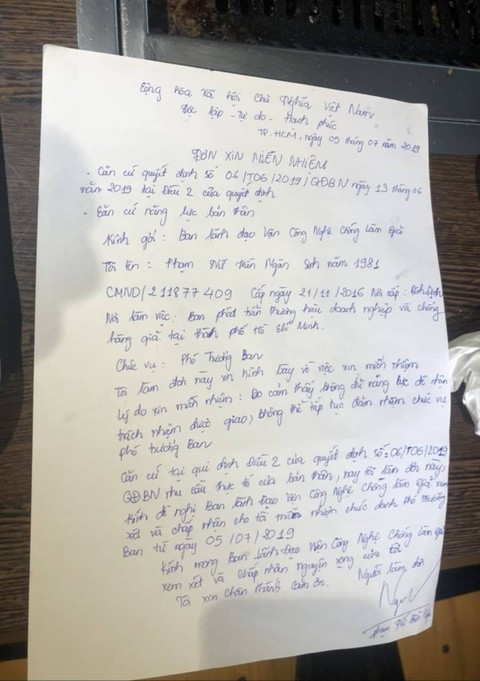 Cộng hòa xã hội chủ nghĩa Việt Nam
Độc lập - tự do - Hạnh phúc
TP.HCM, ngày 05 tháng 07 năm 2019
ĐƠN XIN MIỄN NHIỆM
- Căn cứ quyết định số 06/T06/2019/QĐBN ngày 13 tháng 06
năm 2019 tại Điều 2 của quyết định
- Căn cứ năng lực bản thân
Kính gửi: Ban lãnh đạo Viện Công Nghệ Chống Làm Giả
Tôi tên: Phạm Ngân sinh năm 1981
CMND/211877409 Cấp ngày 21/11/2016 Nơi cấp: Bình Định
Nơi làm việc: Ban phát triển thương hiệu doanh nghiệp và chống
hàng giả tại thành phố Hồ Chí Minh.
Chức vụ: Phó Trưởng Ban
Tôi làm đơn này xin trình bày về việc xin miễn nhiệm
Lý do xin miễn nhiệm: Do cảm thấy không đủ năng lực để nhận
trách nhiệm được giao, không thể tiếp tục đảm nhiệm chức vụ
phó trưởng Ban
Căn cứ tại qui định Điều 2 của quyết định số: 06/T06/2019/
QĐBN nhu cầu thực tế của bản thân, nay tôi làm đơn này,
Kính đề nghị Ban lãnh Đạo Viện Công Nghệ Chống Làm Giả xem
xét và chấp nhận cho tôi miễn nhiệm chức danh phó trưởng
Ban từ ngày 05/07/2019
Kính mong Ban lãnh Đạo Viện Công Nghệ Chống làm Giả
xem xét và chấp nhận nguyện vọng của tôi
Tôi xin chân thành cảm ơn. Người làm đơn